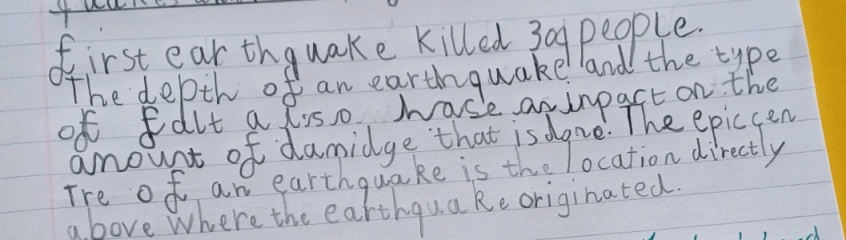 first earthquake killed 309 people.
The depth of an earthquake and the type
of falt alsso hase an inpact on the
amount of damidge that is done. The epiccen
Tre of an earthquake is the location directly
above where the earthquake originated.